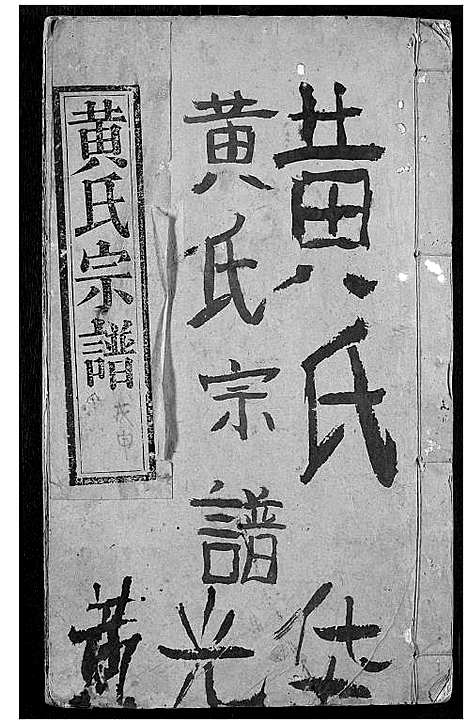 黄氏
黄氏宗譜
黄氏宗譜
黄光